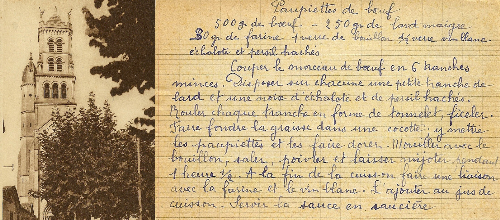 Paupiettes de bœuf.
500 gr. de bœuf. - 250 gr. de lard maigre
30 gr. de farine - de bouillon, 1 verre vin blanc
échalote et persil hachés
Couper le morceau de bœuf en 6 tranches
minces. Disposer sur chacune une petite tranche de
lard et une noix d'échalote et de persil hachés.
Rouler chaque tranche en forme de ficeler.
Faire fondre la graisse dans une cocotte, y mettre
les paupiettes et les faire dorer. Mouiller avec le
bouillon, saler, poivrer et laisser mijoter pendant
1 heure ½. A la fin de la cuisson faire une liaison
avec la farine et le vin blanc. L'ajouter au jus de
cuisson. Servir la sauce en saucière.